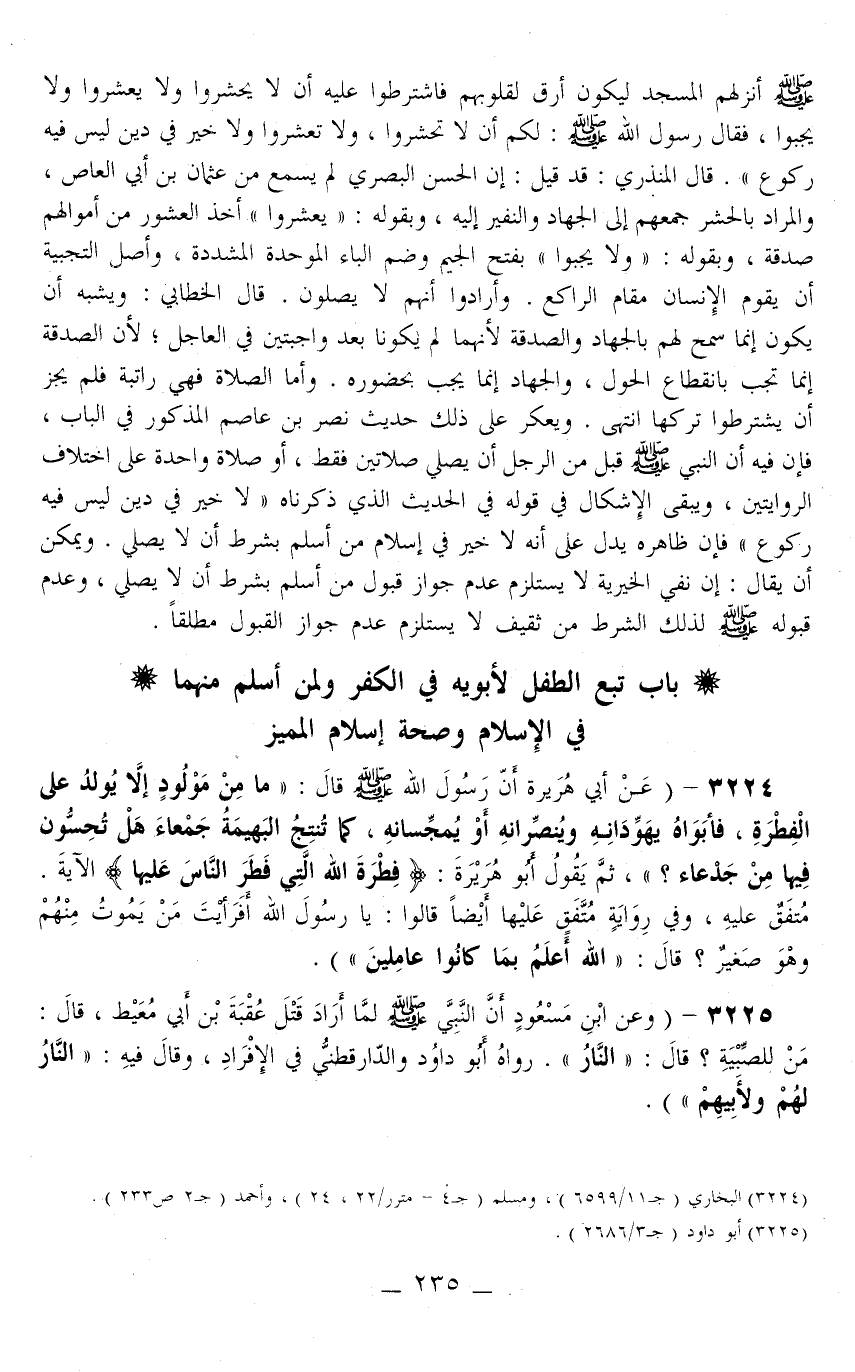 ﷺ أنزلهم المسجد ليكون أرق لقلوبهم فاشترطوا عليه أن لا يحشروا ولا يعشروا ولا
يجبوا ، فقال رسول الله ﷺ : لكم أن لا تحشروا ، ولا تعشروا ولا خير في دين ليس فيه
ركوع » . قال المنذري : قد قيل : إن الحسن البصري لم يسمع من عثمان بن أبي العاص ،
والمراد بالحشر جمعهم إلى الجهاد والنفير إليه ، وبقوله : « يعشروا » أخذ العشور من أموالهم
صدقة ، وبقوله : « ولا يجبوا » بفتح الجيم وضم الباء الموحدة المشددة ، وأصل التجبية
أن يقوم الإنسان مقام الراكع . وأرادوا أنهم لا يصلون . قال الخطابي : ويشبه أن
يكون إنما سمح لهم بالجهاد والصدقة لأنهما لم يكونا بعد واجبتين في العاجل ؛ لأن الصدقة
إنما تجب بانقطاع الحول ، والجهاد إنما يجب بحضوره . وأما الصلاة فهي راتبة فلم يجز
أن يشترطوا تركها انتهى . ويعكر على ذلك حديث نصر بن عاصم المذكور في الباب ،
فإن فيه أن النبي ﷺ قبل من الرجل أن يصلي صلاتين فقط ، أو صلاة واحدة على اختلاف
الروايتين ، ويبقى الإشكال في قوله في الحديث الذي ذكرناه « لا خير في دين ليس فيه
ركوع » فإن ظاهره يدل على أنه لا خير في إسلام من أسلم بشرط أن لا يصلي . ويمكن
أن يقال : إن نفي الخيرية لا يستلزم عدم جواز قبول من أسلم بشرط أن لا يصلي ، وعدم
قبوله ﷺ لذلك الشرط من ثقيف لا يستلزم عدم جواز القبول مطلقاً .
باب تبع الطفل لأبويه في الكفر ولمن أسلم منهما
في الإسلام وصحة إسلام المميز
٣٢٢٤ – ( عَنْ أبي هُرَيرة أَنّ رَسُولَ الله ﷺ قالَ : « ما مِنْ مَوْلُودٍ إلَّا يُولدُ على
الْفِطْرَةِ ، فأَبَوَاهُ يهَوِّدَانِهِ ويُنصِّرانِه أَوْ يُمجِّسانه ، كما تُنتِجُ البَهيمَةُ جَمْعاءَ هَلْ تُحِسُّون
فِيها مِنْ جَدْعاء ؟ » ، ثمَّ يَقُولُ أَبُو هُرَيْرَةَ : ﴿ فِطْرَةَ الله الَّتِي فَطَرَ النَّاسَ عَليها ﴾ الآيةَ .
مُتفَقٌ عليهِ ، وفي رِوَايَةٍ مُتَّفَقٍ عَلَيْها أَيْضاً قالوا : يا رسُولَ الله أَفَرَأَيْتَ مَنْ يَمُوتُ مِنْهُمْ
وهْوَ صَغيرٌ ؟ قالَ : « الله أَعلَمُ بمَا كانُوا عامِلينَ » ) .
٣٢٢٥ – ( وعن ابْنِ مَسْعُودٍ أَنَّ النَّبيَّ ﷺ لمَّا أَرَادَ قَتْلَ عُقْبَةَ بْن أَبي مُعَيْط ، قالَ :
مَنْ للصِّبْيَةِ ؟ قالَ : « النَّارُ » . رواهُ أَبُو داوُد والدّارقطنيُّ في الإفْرَادِ ، وقالَ فيهِ : « النَّارُ
لهُمْ ولأَبِيهِمْ » ) .
(٣٢٢٤) البخاري ( جـ٦٥٩٩/١١ ) ، ومسلم ( جـ٤ – مترر/٢٢ ، ٢٤ ) ، وأحمد ( جـ٢ ص٢٣٣ ) .
(٣٢٢٥) أبو داود ( جـ٢٦٨٦/٣ ) .
_ ٢٣٥ _